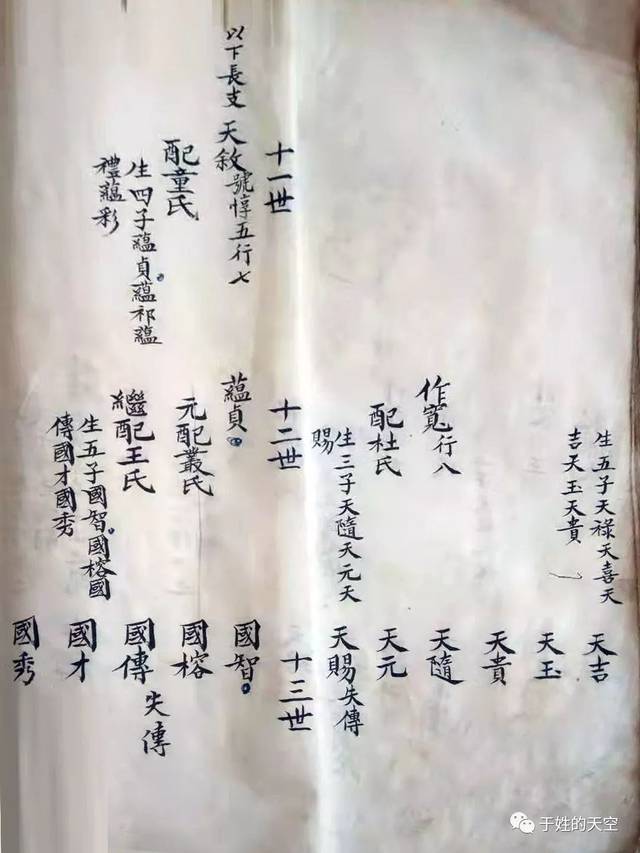 生五子天祿天喜天
吉天玉天貴
天吉
天玉
天貴
作寬行八
配杜氏
生三子天隨天元天
賜
天隨
天元
天賜失傳
十一世
十二世
十三世
以下長支
天敘號惇五行七
配童氏
生四子蘊貞蘊祁蘊
禮蘊彩
蘊貞
元配叢氏
繼配王氏
生五子國智國榕國
傳國才國秀
國智
國榕
國傳
失傳
國才
國秀
于姓的天空